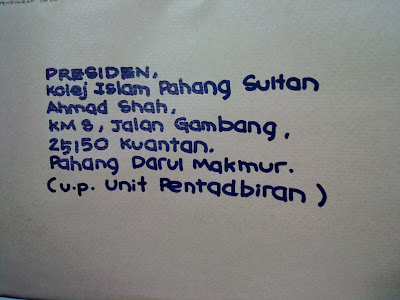 PRESIDEN,
Kolej Islam Pahang Sultan
Ahmad Shah,
KM 8, Jalan Gambang,
25150 Kuantan.
Pahang Darul Makmur.
(u.p. Unit Pentadbiran)